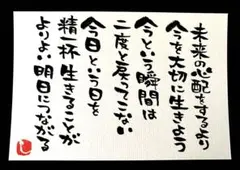 未来の心配をするより
今を大切に生きよう
今という瞬間は
二度と戻ってこない
今日という日を
精一杯生きることが
よりよい明日につながる